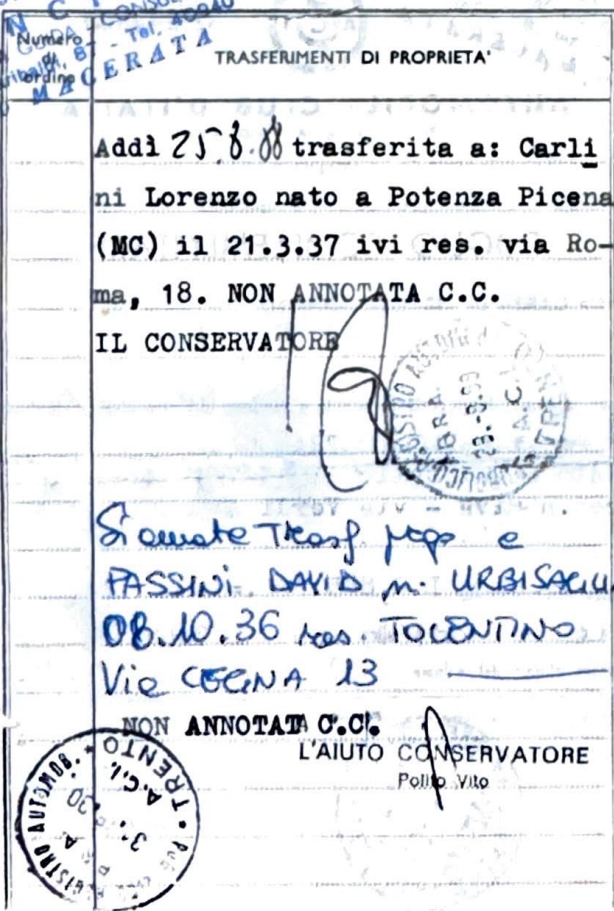 CONSUL
Tel. 40940
MACERATA
Numero
di
ordine
TRASFERIMENTI DI PROPRIETA'
Addì 25.8.88 trasferita a: Carli
ni Lorenzo nato a Potenza Picena
(MC) il 21.3.37 ivi res. via Ro-
ma, 18. NON ANNOTATA C.C.
IL CONSERVATORE
Si annota Trasf
PASSINI DAVID n. URBISAGLI
08.10.36 res. TOLENTINO
Via 13
NON ANNOTATA C.C.
L'AIUTO CONSERVATORE
Polito Vito
REGISTRO AUTOMOB. * TRENTO *
A.C.I.